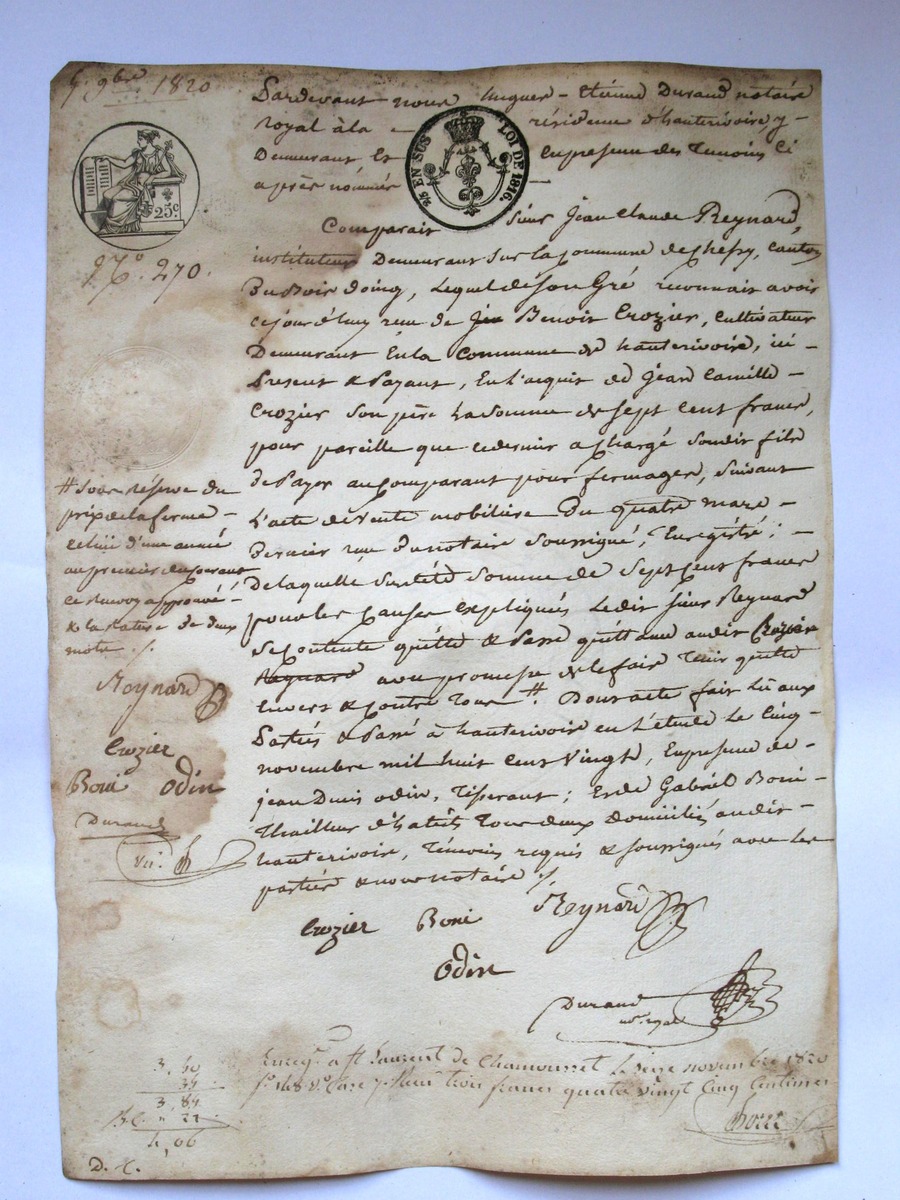 5. 9bre 1820
Pardevant nous hugues - Etienne Durand notaire
royal à la résidence d'hauterivoire, y -
Demeurant Et en presence des Temoins ci
après nommés
25c
2/5 EN SUS LOI DE 1816.
No. 270.
Comparait Sieur Jean Claude Reynard,
instituteur Demeurant sur la Commune de chessy, canton
Du Bois doing, Lequel de son Gré reconnait avoir
cejourd'huy reçu de Benoit Crozier, Cultivateur
Demeurant En la Commune de hauterivoire, ici
Present & Payant, En l'acquit de Jean Camille -
Crozier Son père La Somme de Sept Cent francs,
pour pareille que ce dernier a chargé son dit fils
de Payer au Comparant pour fermages, Suivant
L'acte de vente mobiliaire Du quatre mars -
Dernier reçu Du notaire soussigné, Enregistré ; -
de laquelle Susdite Somme de Sept Cent francs
pour les Causes Expliquées Ledit Sieur Reynard
Se Contente quitte & Passe quittance audit Crozier
Reynard avec promesse de le faire Tenir quitte
Envers & Contre Tous #. Dont acte fait Lu aux
Parties & Passé à hauterivoire en L'étude Le Cinq
novembre mil huit Cent Vingt, En presence de -
jean Denis odin, Tisserant ; Et de Gabriel Boni -
Thailleur d'habits Tous deux domiciliés audit -
hauterivoire, Témoins requis & Soussignés avec les
parties & nous notaire ./.
# Sous Réserve du
prix de la ferme -
celui d'une année
au premier
ce Renvoy approuvé -
& la rature de deux
mots ./.
Reynard
Crozier
Boni Odin
Durand
Crozier Boni Reynard
Odin
Durand
nre. royal
Enregé. à St Laurent de Chamousset Le seize novembre 1820
fo. 148 Vo. Case 7. Reçu trois francs quatre vingt Cinq Centimes
3, 50
35
3, 85
22
4, 06
D. C.